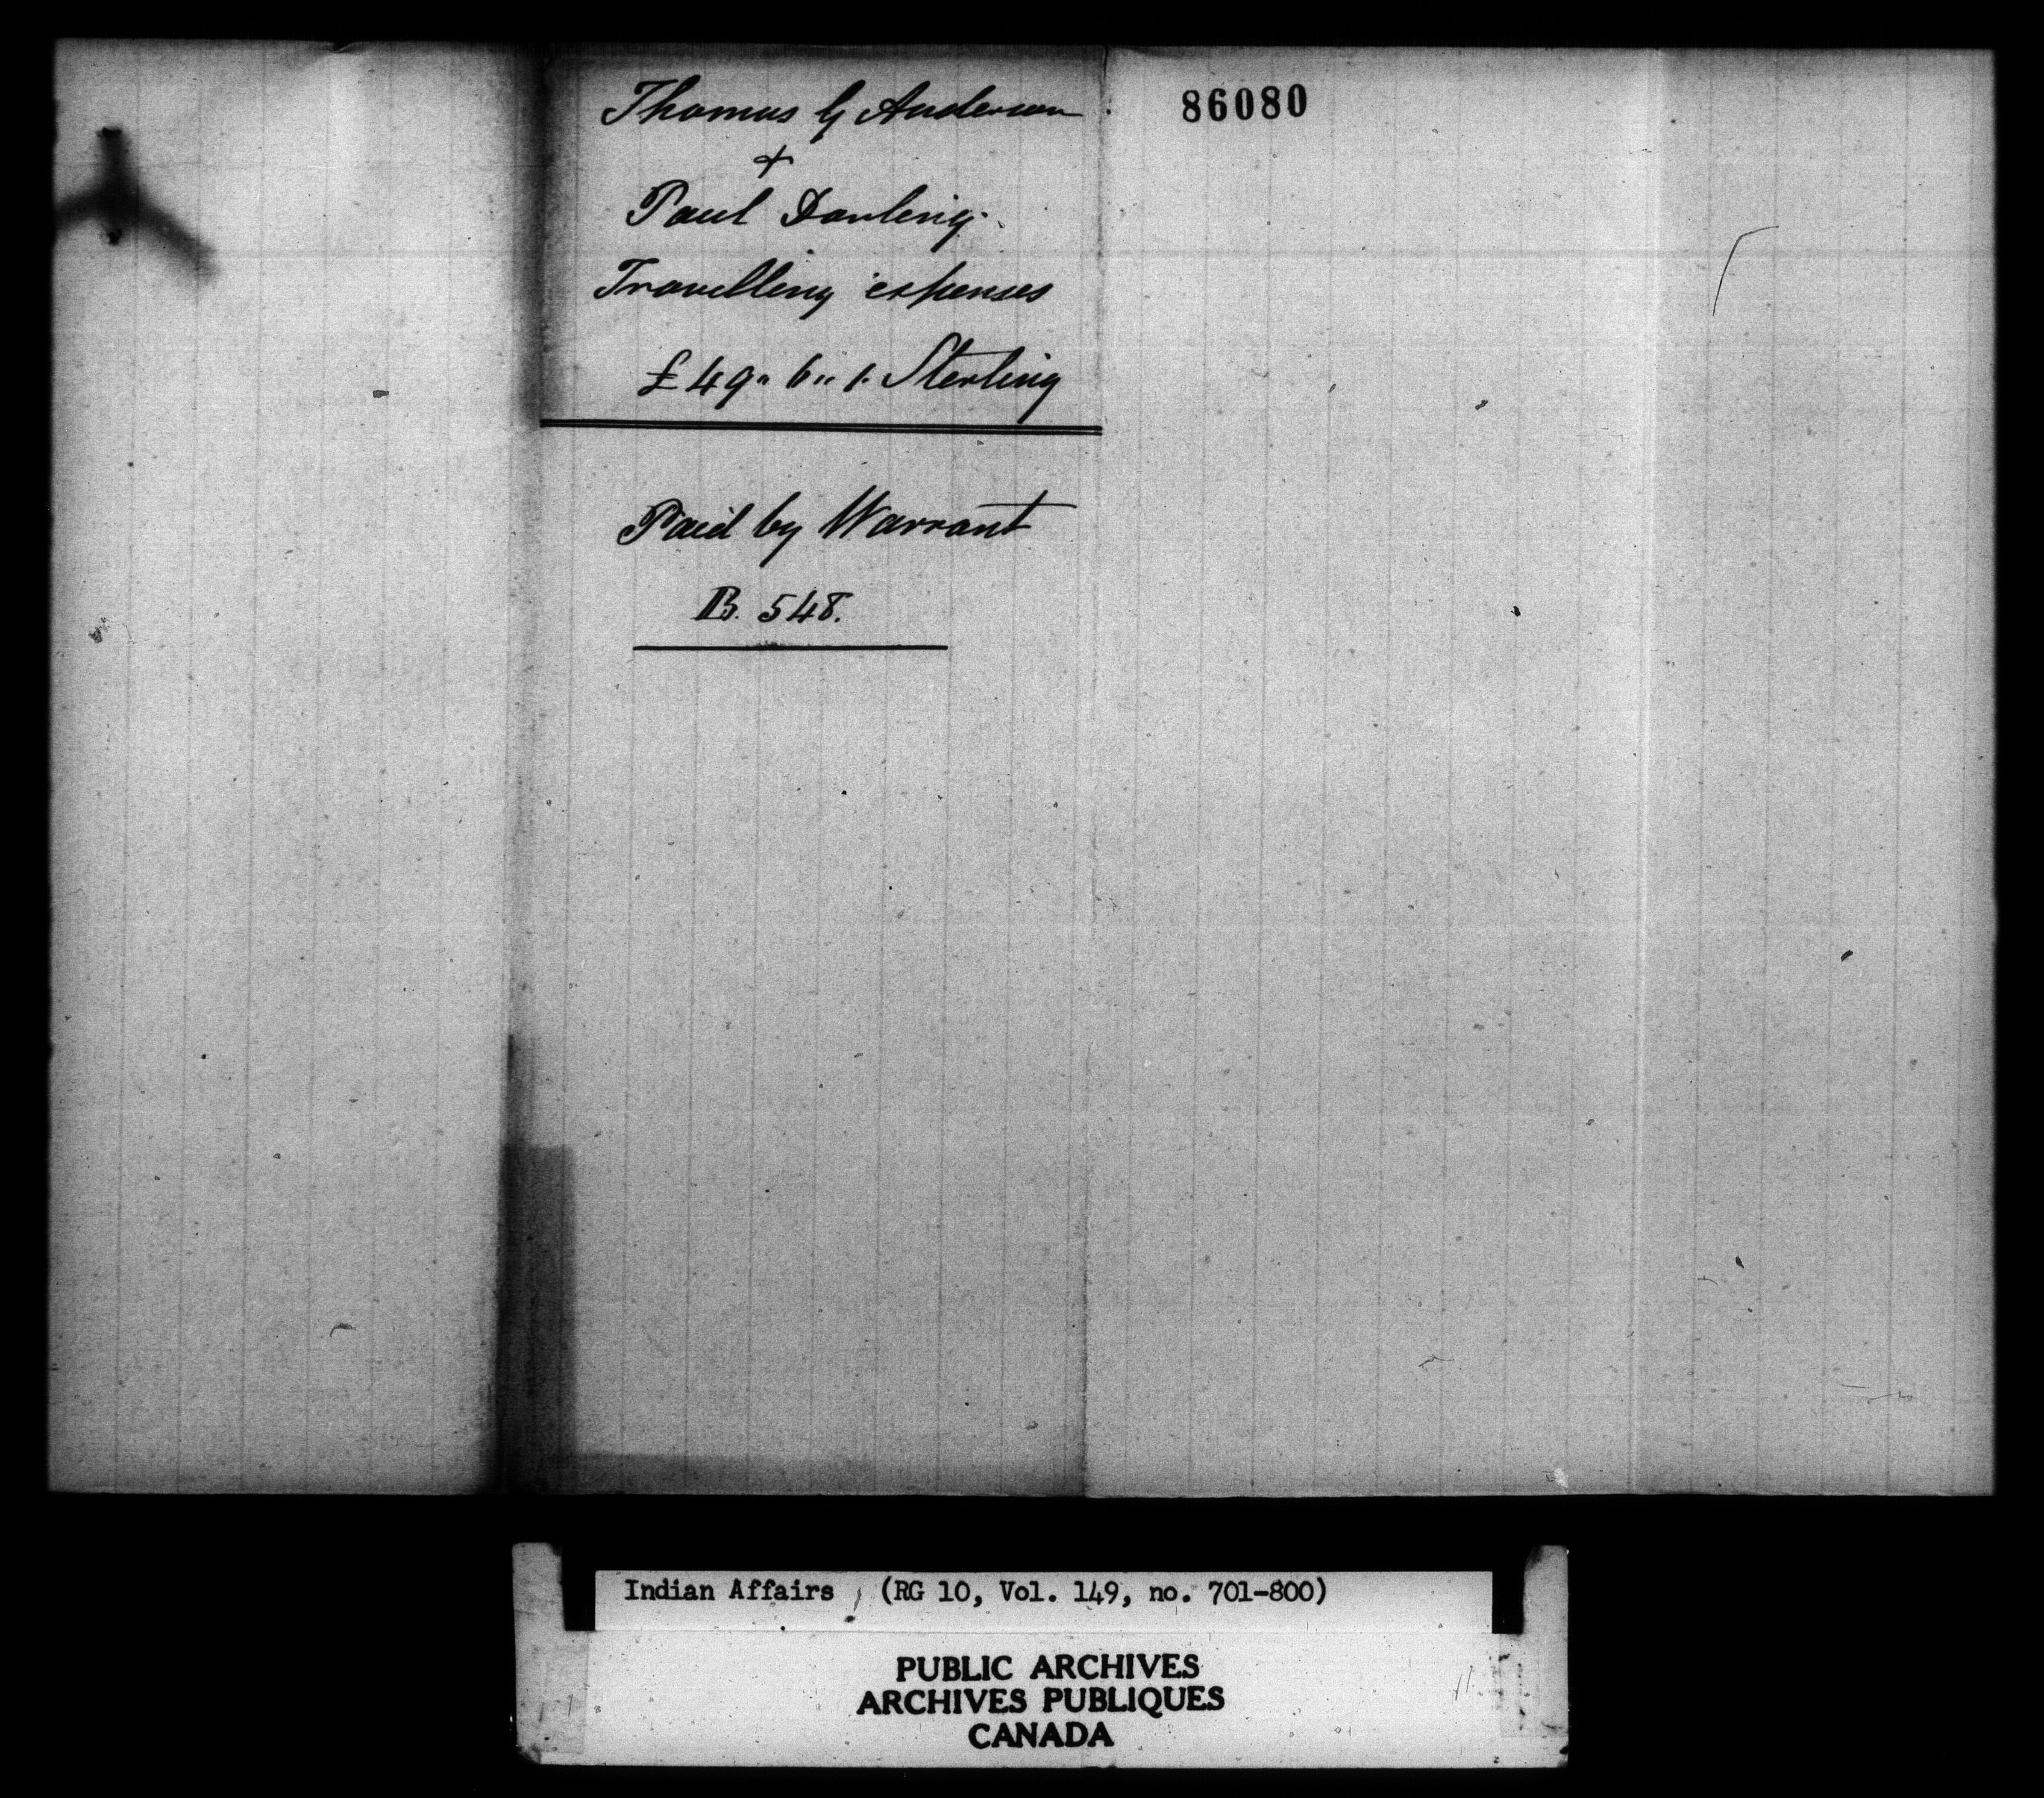 Thomas G Anderson
&
Paul Darling.
Travelling expenses
£49" 6" 1. Sterling
Paid by Warrant
B. 548.
86080
Indian Affairs (RG 10, Vol. 149, no. 701-800)
PUBLIC ARCHIVES
ARCHIVES PUBLIQUES
CANADA